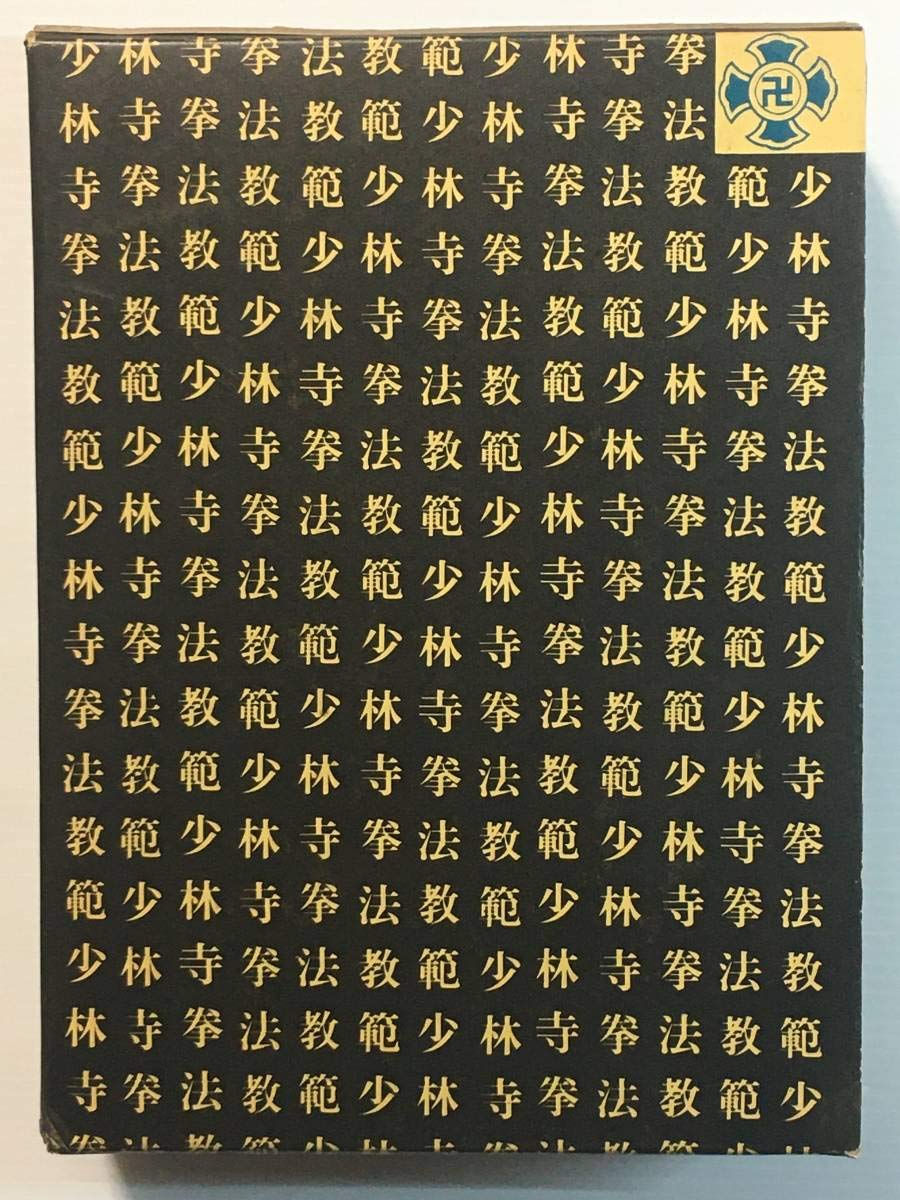 少林寺拳法教範少林寺拳
卍
林寺拳法教範少林寺拳法
寺拳法教範少林寺拳法教範少
拳法教範少林寺拳法教範少林
法教範少林寺拳法教範少林寺
教範少林寺拳法教範少林寺拳
範少林寺拳法教範少林寺拳法
少林寺拳法教範少林寺拳法教
林寺拳法教範少林寺拳法教範
寺拳法教範少林寺拳法教範少
拳法教範少林寺拳法教範少林
法教範少林寺拳法教範少林寺
教範少林寺拳法教範少林寺拳
範少林寺拳法教範少林寺拳法
少林寺拳法教範少林寺拳法教
林寺拳法教範少林寺拳法教範
寺拳法教範少林寺拳法教範少
拳法教範少林寺拳法教範少林